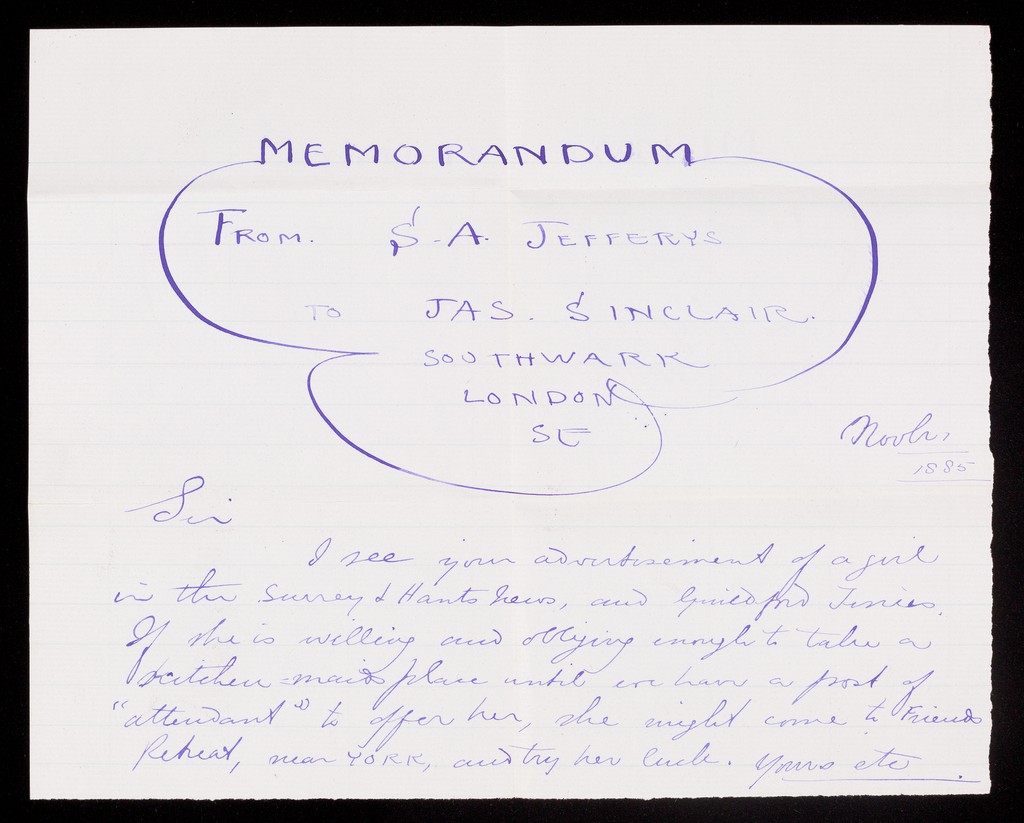 MEMORANDUM
FROM. S. A. JEFFERYS
TO JAS. SINCLAIR.
SOUTHWARK
LONDON
SE
Novbr,
1885
Sir
I see your advertisement of a girl
in the Surrey & Hants News, and Guildford Times.
If she is willing and obliging enough to take a
kitchen=maids place until we have a post of
"attendant" to offer her, she might come to Friends
Retreat, near YORK, and try her luck. Yours etc.